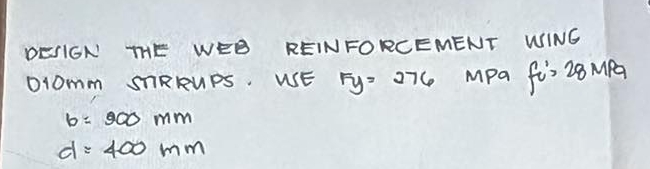 DESIGN THE WEB REINFORCEMENT USING
D10mm STIRRUPS. USE Fy= 276 MPa fc'= 28 MPa
b= 900 mm
d= 400 mm